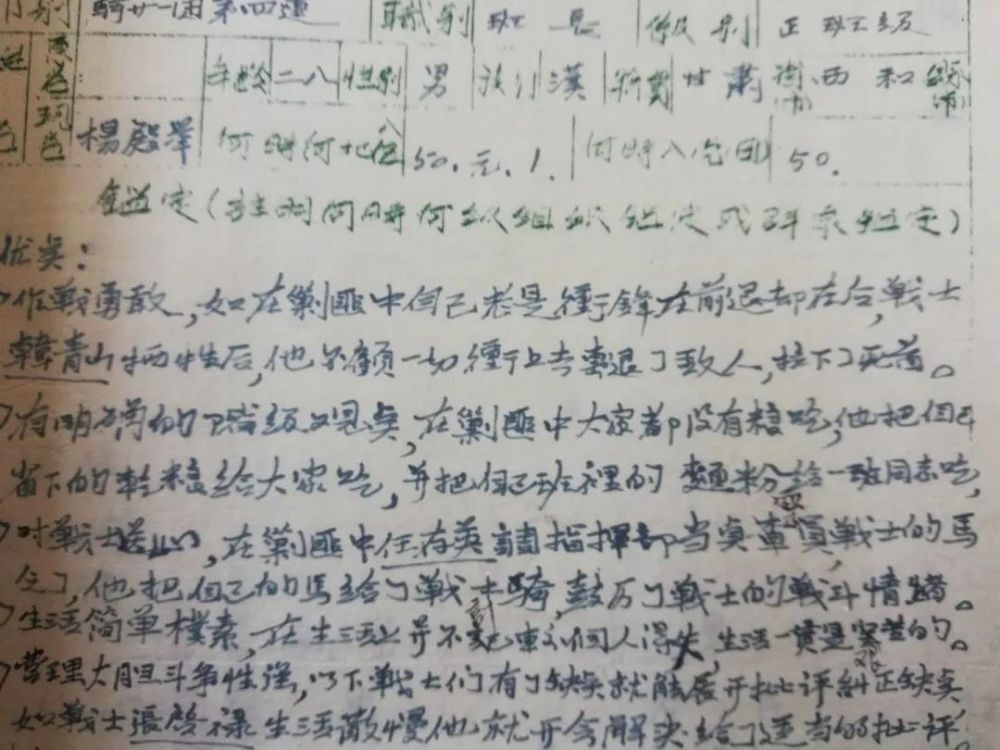 别 骑廿一团第四連 職别 班長 級别 正班级
年龄 二八 性别 男 族别 漢 籍贯 甘肅省(市)西和縣(市)
楊殿举 何時何地入伍 50.元.1. 何時入党团 50.
鉴定(註明何时何级组织鉴定或群众鉴定)
优点:
作戰勇敢,如在剿匪中自己老是衝鋒在前退却在后,戰士
韓青山牺牲后,他不顧一切衝上去擊退了敌人,拉下了死首。
有明确的階级观点,在剿匪中大家都没有粮吃,他把自己
省下的乾粮给大家吃,并把自己班裡的麵粉给一班同志吃,
对戰士,在剿匪中任存英調指揮部当戰士的馬
乏了,他把自己的馬给了戰士骑,鼓厉了戰士的戰斗情緒。
生活简单樸素,在生活上并不計較個人得失,生活一貫是艱苦的。
管理大胆斗争性强,以下戰士们有了缺点就能展开批评糾正缺点
如戰士張啓禄生活散慢他就开会解决给了适当的批评,